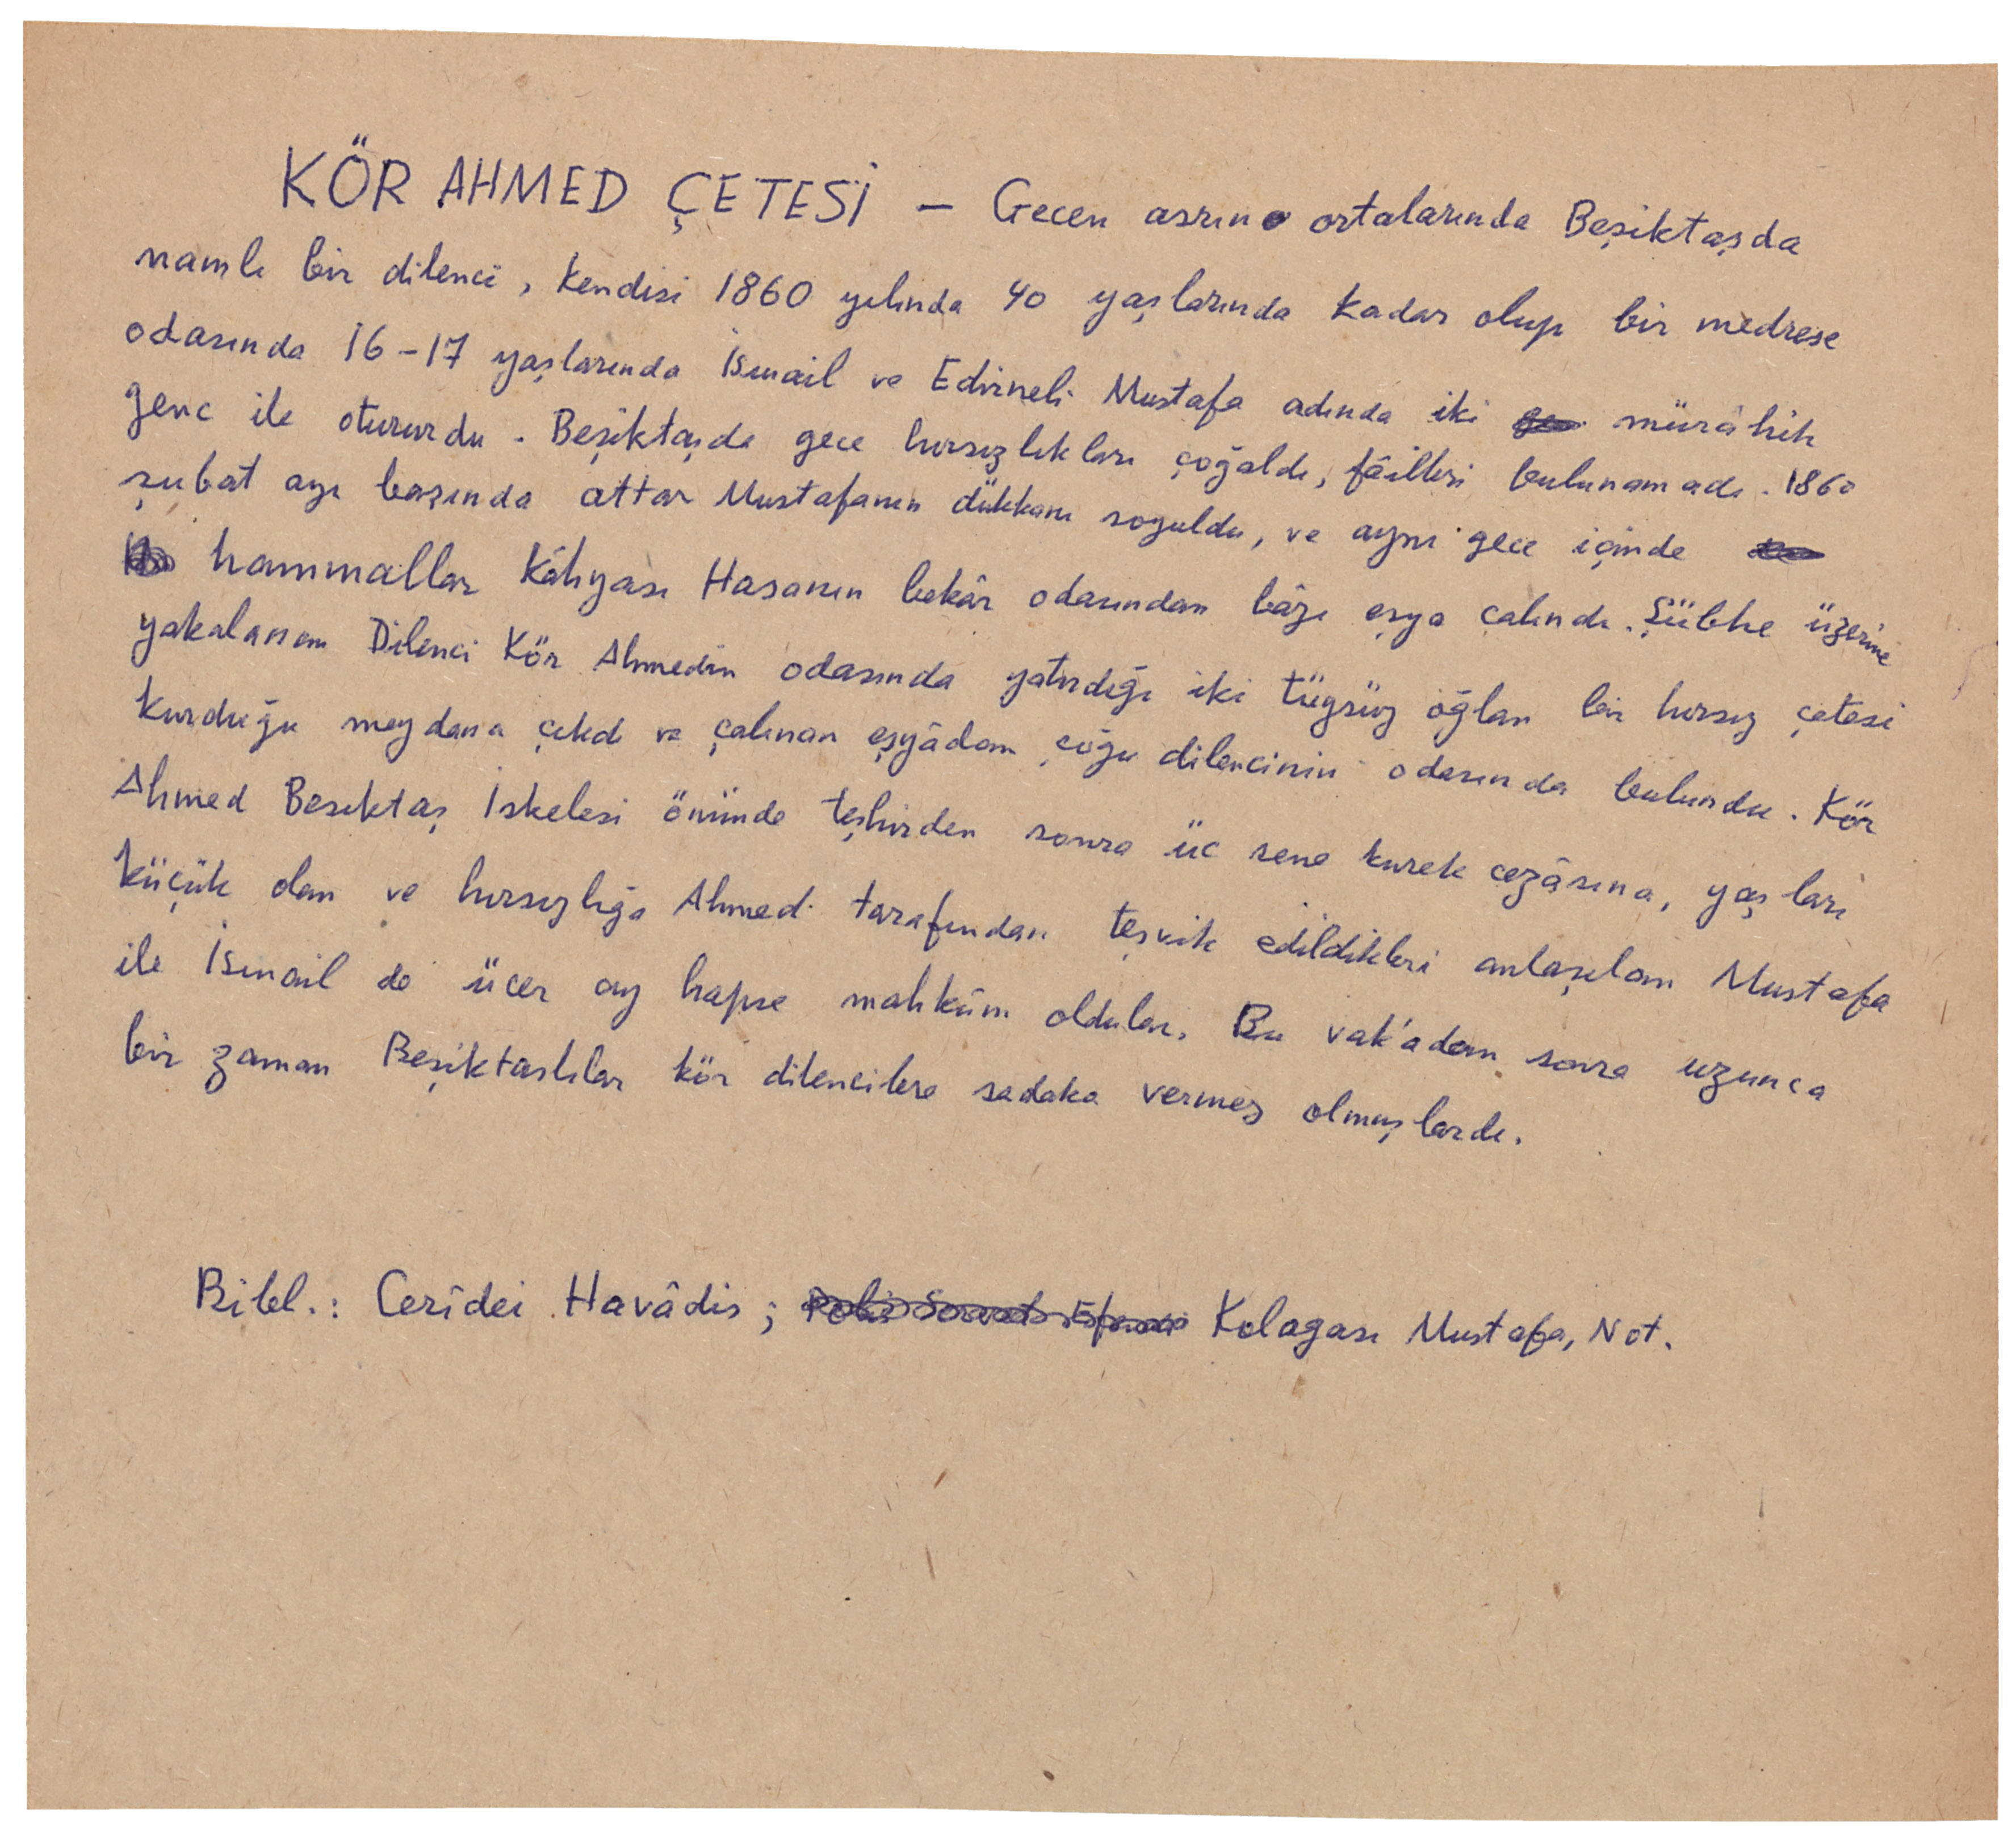 KÖR AHMED ÇETESİ — Gecen asrın ortalarında Beşiktaşda
namlı bir dilenci, kendisi 1860 yılında 40 yaşlarında kadar olup bir medrese
odasında 16-17 yaşlarında İsmail ve Edirneli Mustafa adında iki mürâhik
genc ile otururdu. Beşiktaşda gece hırsızlıkları çoğaldı, fâilleri bulunamadı. 1860
şubat ayı başında attar Mustafanın dükkanı soyuldu, ve aynı gece içinde
hammallar Kâhyası Hasanın bekâr odasından bâzı eşya calındı. Şübhe üzerine
yakalanan Dilenci Kör Ahmedin odasında yatırdığı iki tüysüz oğlan bir hırsız çetesi
kurduğu meydana çıkdı ve çalınan eşyâdan çoğu dilencinin odasında bulundu. Kör
Ahmed Besıktaş İskelesi önünde teşhirden sonra üc sene kurek cezâsına, yaşları
küçük olan ve hırsızlığa Ahmed tarafından teşvik edildikleri anlaşılan Mustafa
ile İsmail de ücer ay hapse mahkûm oldular. Bu vak'adan sonra uzunca
bir zaman Beşiktaslılar kör dilencilere sadaka vermez olmuşlardı.
Bibl.: Cerîdei Havâdis; Kolagası Mustafa, Not.